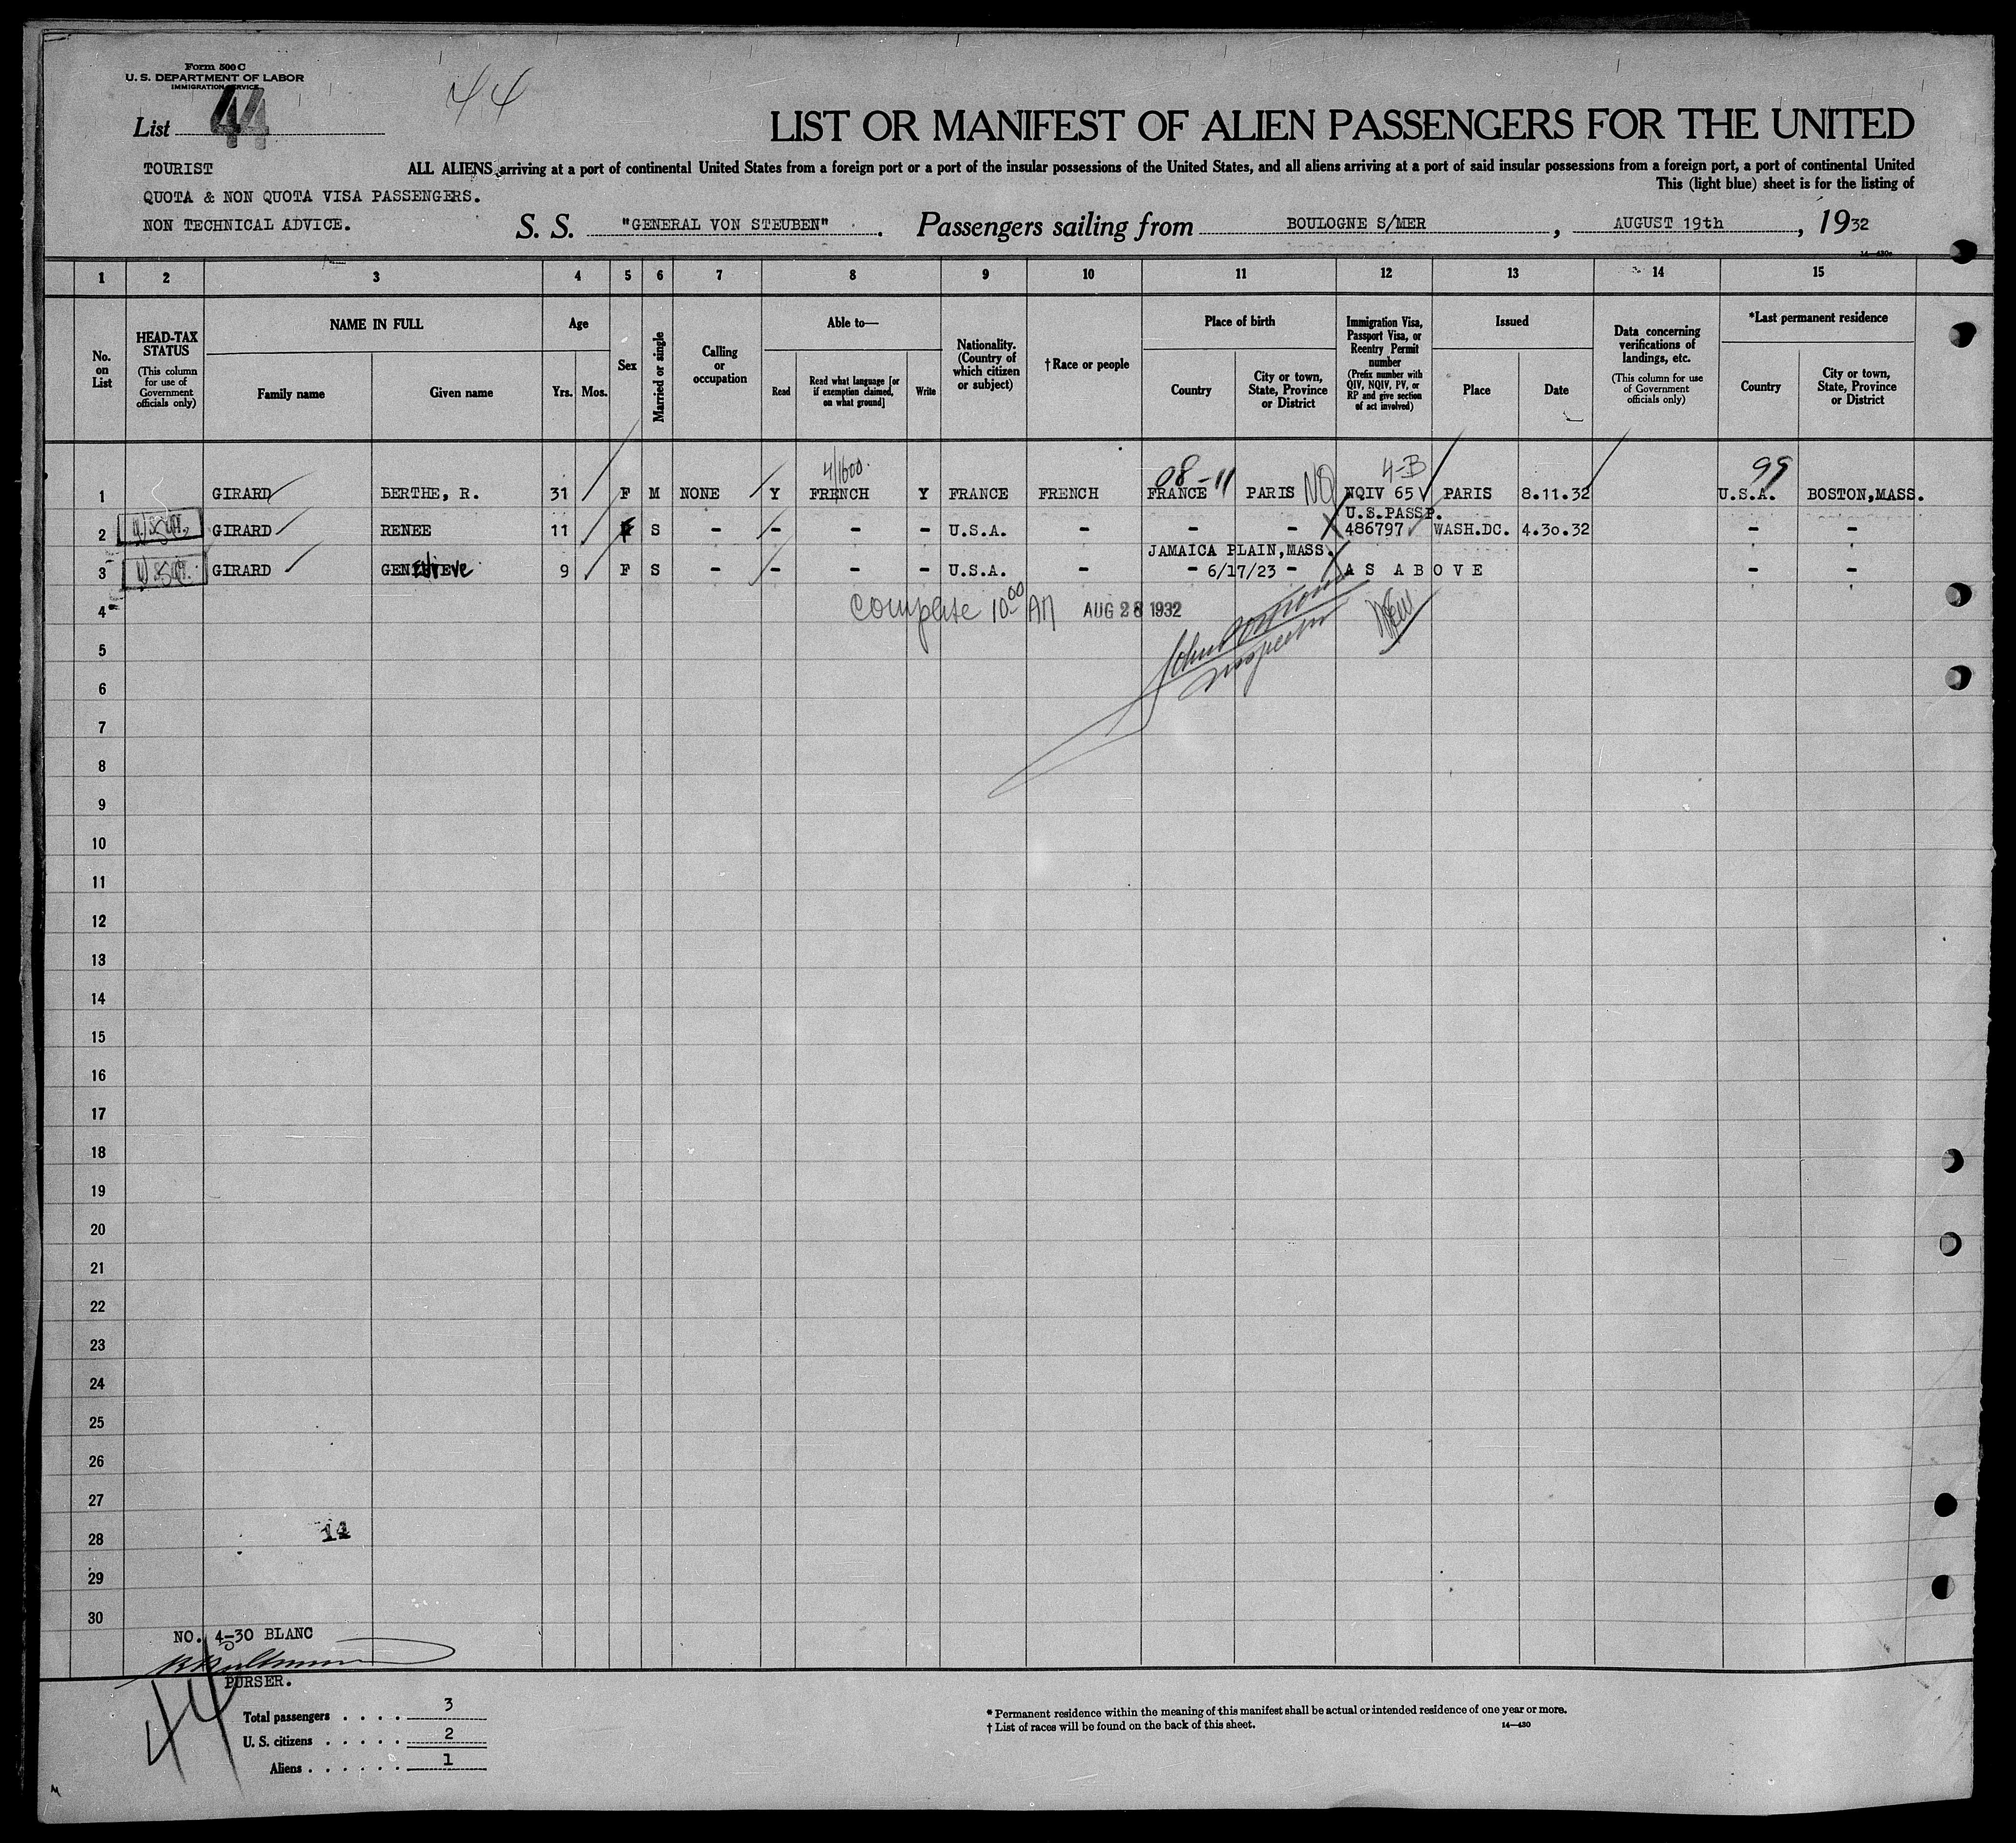 Form 500 C
U. S. DEPARTMENT OF LABOR
IMMIGRATION SERVICE
List 44
44
LIST OR MANIFEST OF ALIEN PASSENGERS FOR THE UNITED
TOURIST
QUOTA & NON QUOTA VISA PASSENGERS.
NON TECHNICAL ADVICE.
ALL ALIENS arriving at a port of continental United States from a foreign port or a port of the insular possessions of the United States, and all aliens arriving at a port of said insular possessions from a foreign port, a port of continental United
This (light blue) sheet is for the listing of
S. S. "GENERAL VON STEUBEN". Passengers sailing from BOULOGNE S/MER, AUGUST 19th, 1932
14—430c
1 2 3 4 5 6 7 8 9 10 11 12 13 14 15
No. on List
HEAD-TAX STATUS
(This column for use of Government officials only)
NAME IN FULL
Family name
Given name
Age
Yrs. Mos.
Sex
Married or single
Calling or occupation
Able to—
Read
Read what language [or if exemption claimed, on what ground]
Write
Nationality. (Country of which citizen or subject)
† Race or people
Place of birth
Country
City or town, State, Province or District
Immigration Visa, Passport Visa, or Reentry Permit number
(Prefix number with QIV, NQIV, PV, or RP and give section of act involved)
Issued
Place
Date
Data concerning verifications of landings, etc.
(This column for use of Government officials only)
*Last permanent residence
Country
City or town, State, Province or District
4/1600. 08-11 NQ 4-B 99
1 GIRARD BERTHE, R. 31 F M NONE Y FRENCH Y FRANCE FRENCH FRANCE PARIS NQIV 65 PARIS 8.11.32 U.S.A. BOSTON,MASS.
U.S.PASSP.
2 GIRARD RENEE 11 F S - - - - U.S.A. - - - 486797 WASH.DC. 4.30.32 - -
JAMAICA PLAIN,MASS.
3 GIRARD GENEVIEVE 9 F S - - - - U.S.A. - - 6/17/23 - AS ABOVE - -
4 Complete 10 00 AM AUG 28 1932
Inspector
5
6
7
8
9
10
11
12
13
14
15
16
17
18
19
20
21
22
23
24
25
26
27
28
14
29
30
NO. 4-30 BLANC
PURSER.
44
Total passengers . . . . 3
U. S. citizens . . . . . 2
Aliens . . . . . . 1
* Permanent residence within the meaning of this manifest shall be actual or intended residence of one year or more.
† List of races will be found on the back of this sheet.
14—430